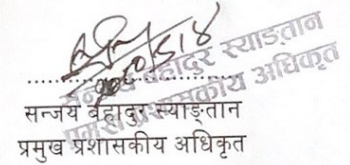 सन्जय बहादुर स्याङ्तान
प्रमुख प्रशासकीय अधिकृत
सन्जय बहादुर स्याङ्तान
प्रमुख प्रशासकीय अधिकृत